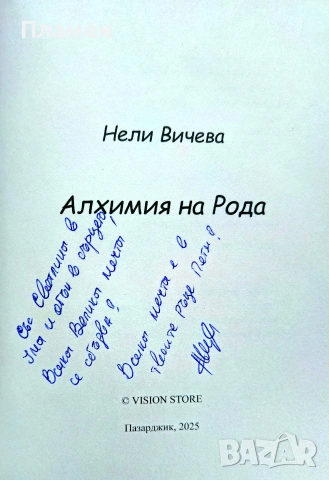 Нели Вичева
Алхимия на Рода
Със Светлина в
ума и огън в сърцето
Всяка Велика мечта
се сбъдва!
Всяка мечта е в
твоите ръце Пепи!
© VISION STORE
Пазарджик, 2025
bazar